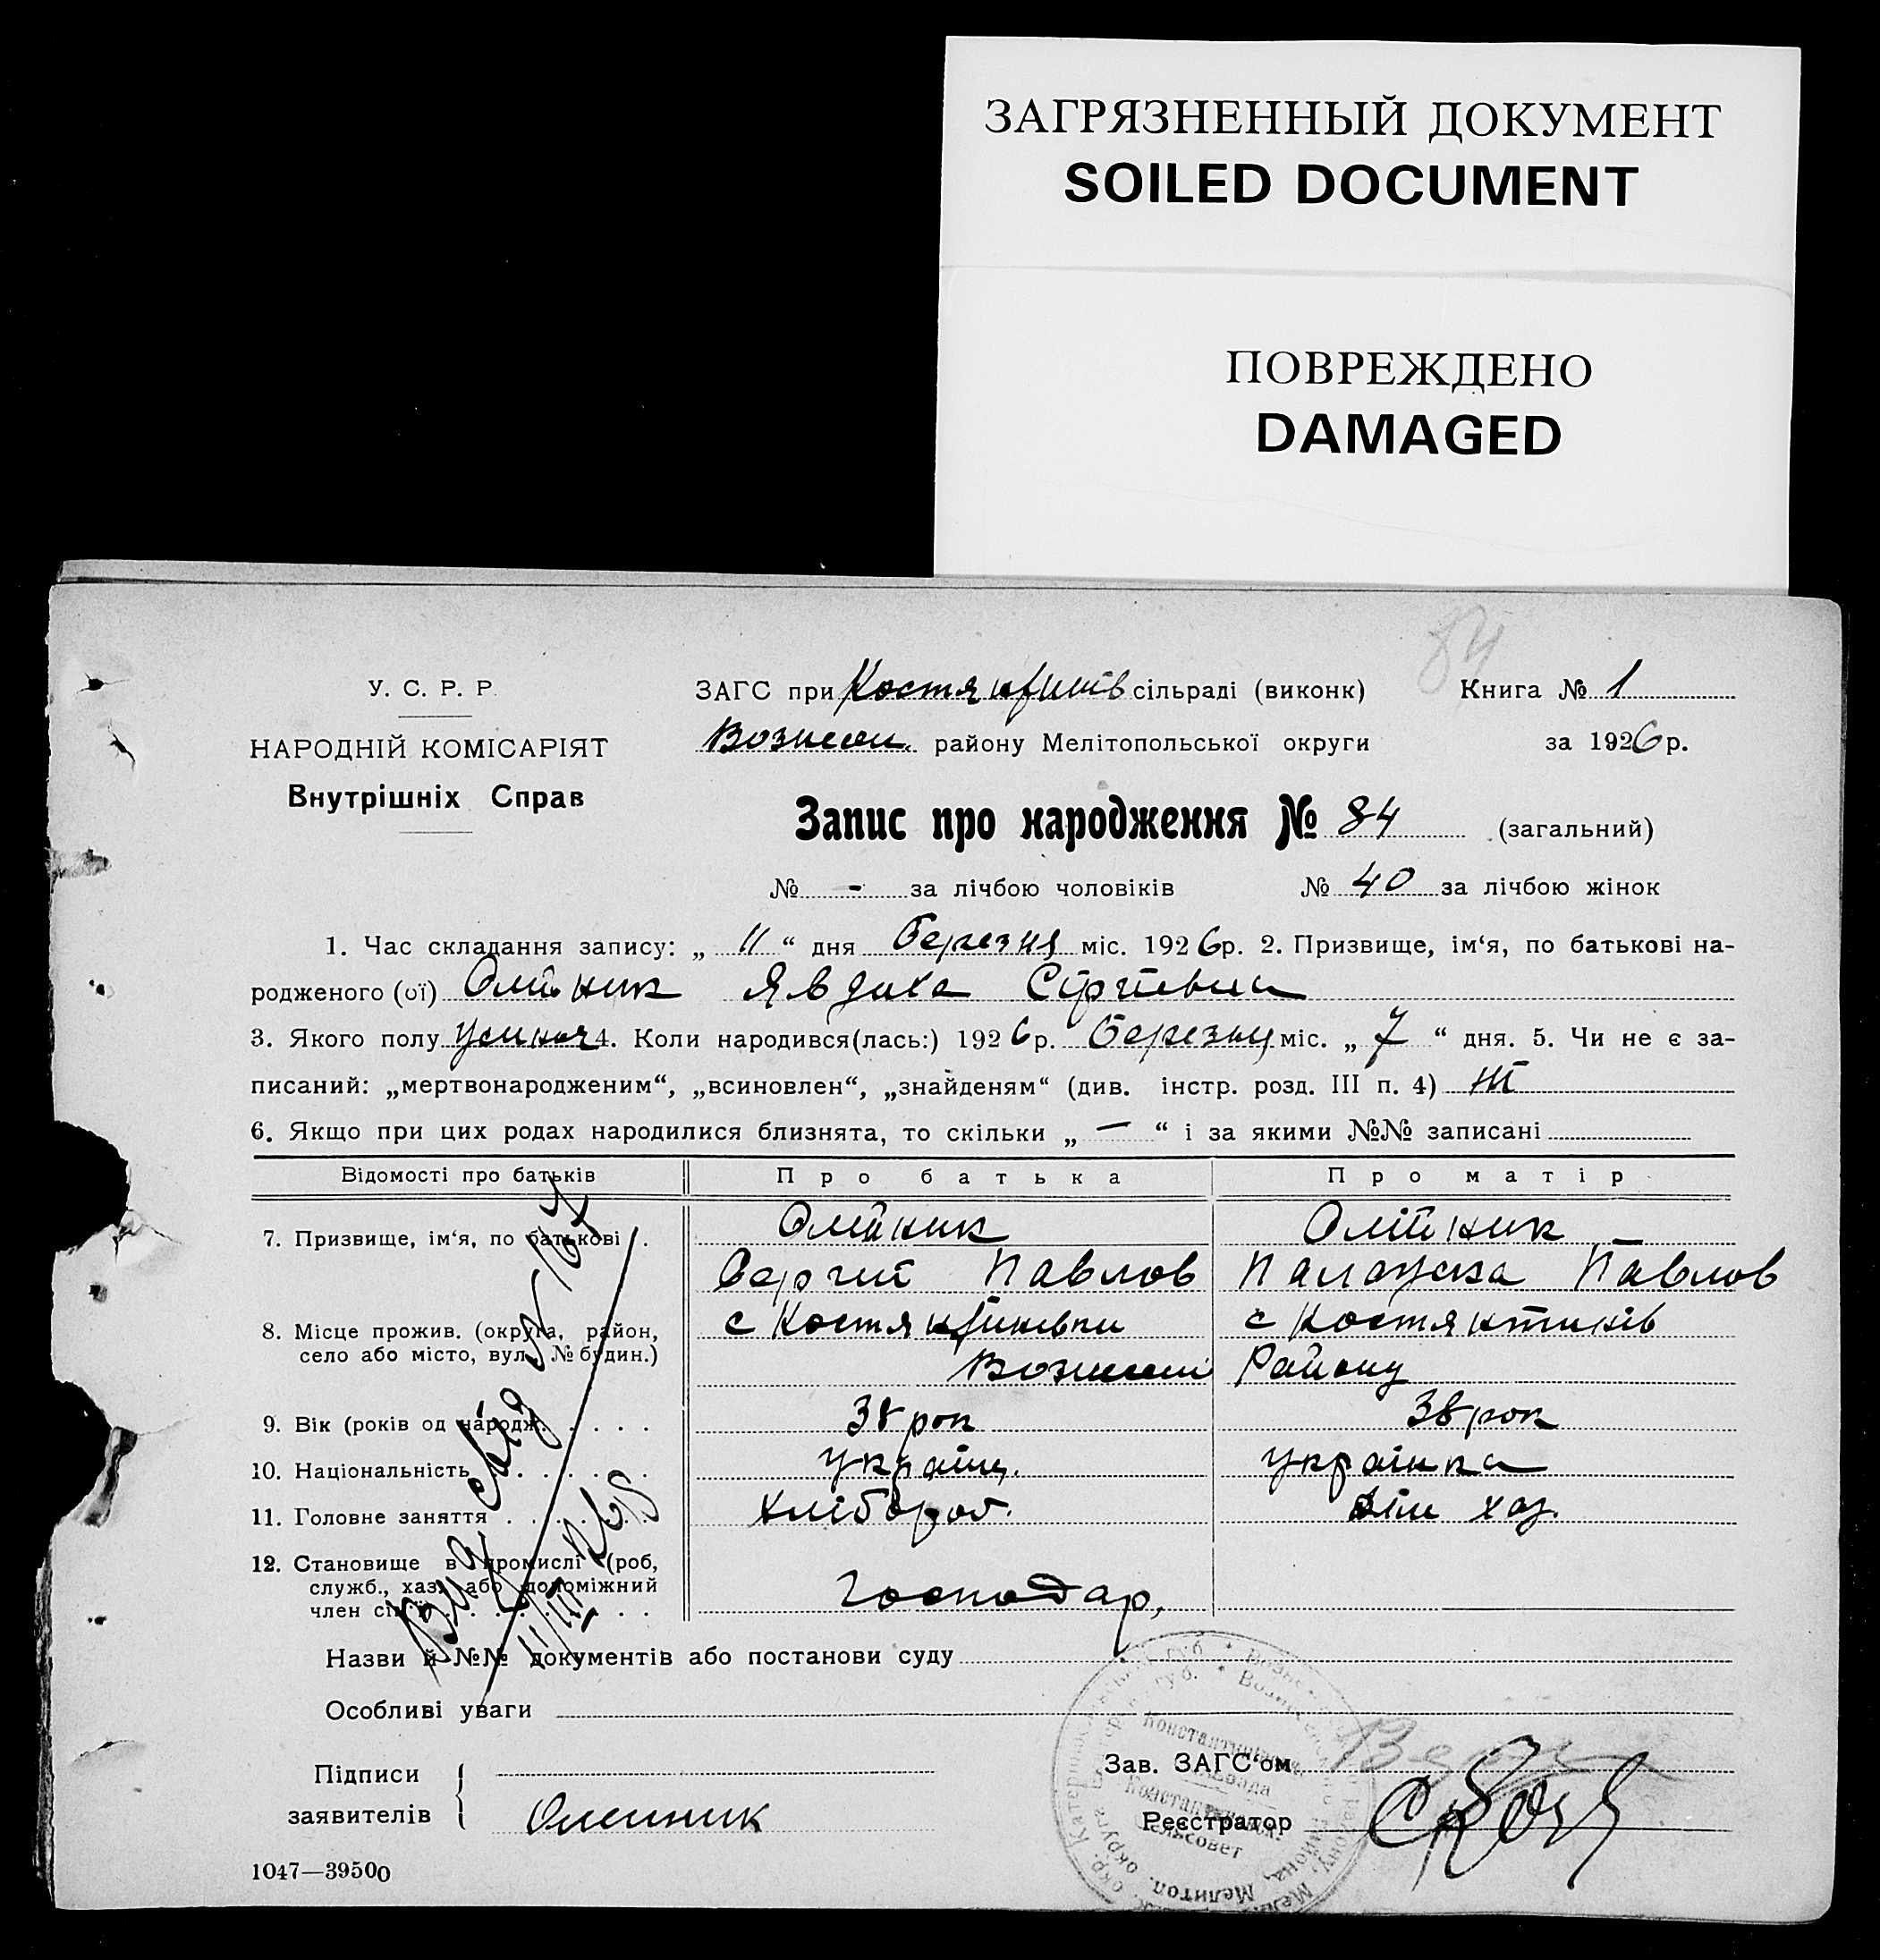 ЗАГРЯЗНЕННЫЙ ДОКУМЕНТ
SOILED DOCUMENT
ПОВРЕЖДЕНО
DAMAGED
84
У. С. Р. Р.
НАРОДНІЙ КОМІСАРІЯТ
Внутрішніх Справ
ЗАГС при Костянтинів сільраді (виконк) Книга № 1
Вознесен. району Мелітопольської округи за 1926 р.
Запис про народження № 84 (загальний)
№ - за лічбою чоловіків № 40 за лічбою жінок
1. Час складання запису: „ 11 “ дня березня міс. 1926 р. 2. Призвище, ім‘я, по батькові на-
родженого (ої) Олійник Явдоха Сергіевна
3. Якого полу 4. Коли народився(лась:) 1926 р. березня міс. „ 7 “ дня. 5. Чи не є за-
писаний: „мертвонародженим“, „всиновлен“, „знайденям“ (див. інстр. розд. III п. 4) ні
6. Якщо при цих родах народилися близнята, то скільки „ — “ і за якими №№ записані
Відомості про батьків Про батька Про матір
7. Призвище, ім‘я, по батькові . Олійник Олійник
Сергій Павлов Палажка Павлов
8. Місце прожив. (округа, район, с Костянтинівки с Костянтинів
село або місто, вул. № будин.) Вознесен Району
9. Вік (років од народж. . . . . . 38 рок 38 рок
10. Національність . . . . . . . україн. українка
11. Головне заняття . . . . . . . хлібороб. дім хаз.
12. Становище в промислі (роб,
служб., хаз. або допоміжний
член сім‘ї) . . . . . . . господар.
Назви й №№ документів або постанови суду
Особливі уваги
Підписи
заявителів Олейник
Зав. ЗАГС‘ом
Реєстратор
1047—39500